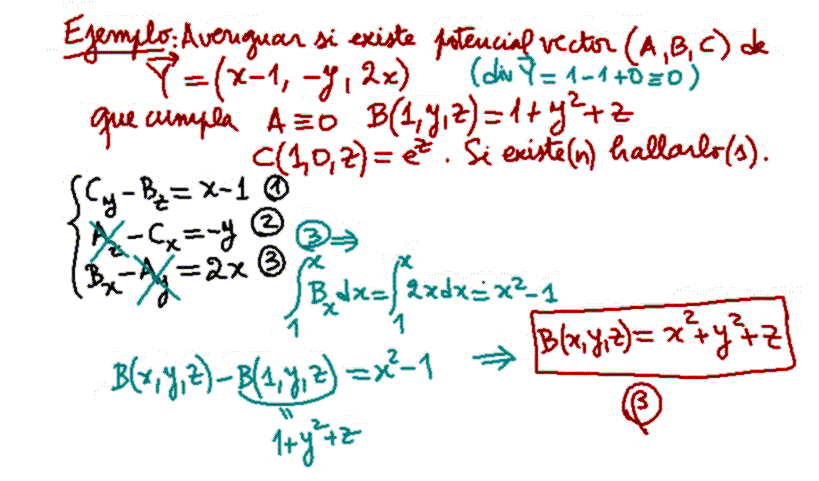 Ejemplo: Averiguar si existe potencial vector (A, B, C) de
Y⃗ = (x-1, -y, 2x) (div Y⃗ = 1-1+0≡0)
que cumpla A≡0 B(1,y,z)=1+y²+z
C(1,0,z)=e^z. Si existe(n) hallarlo(s).
C_y - B_z = x-1 ①
A_z - C_x = -y ②
B_x - A_y = 2x ③
③ ⇒
∫₁ˣ B_x dx = ∫₁ˣ 2x dx = x²-1
B(x,y,z) - B(1,y,z) = x²-1 ⇒ B(x,y,z) = x²+y²+z
"
1+y²+z
β